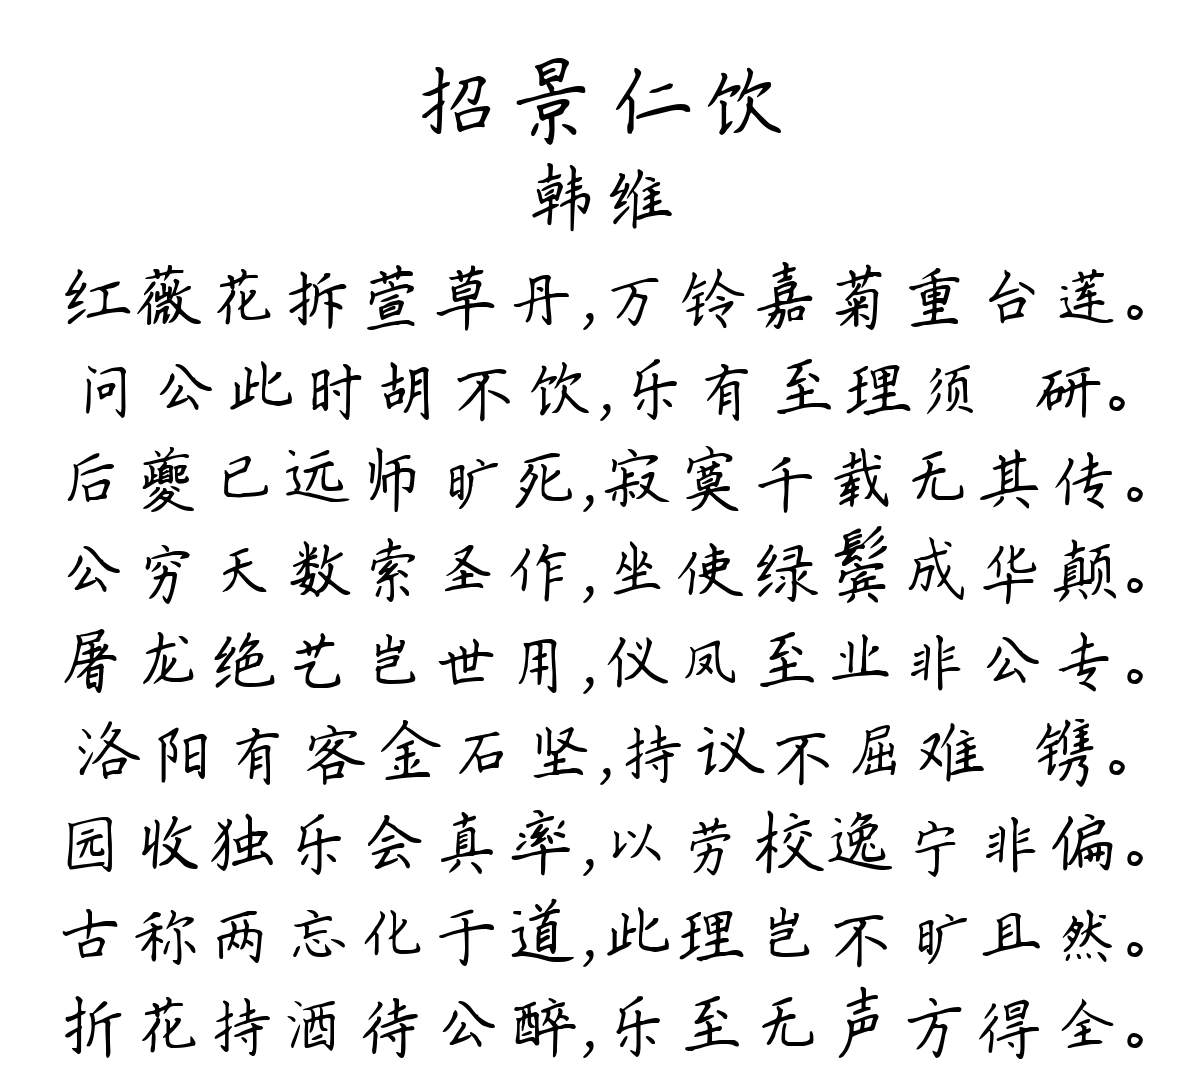 招景仁饮
韩维
红薇花拆萱草丹,万铃嘉菊重台莲。
问公此时胡不饮,乐有至理须 研。
后夔已远师旷死,寂寞千载无其传。
公穷天数索圣作,坐使绿鬓成华颠。
屠龙绝艺岂世用,仪凤至业非公专。
洛阳有客金石坚,持议不屈难 镌。
园收独乐会真率,以劳校逸宁非偏。
古称两忘化于道,此理岂不旷且然。
折花持酒待公醉,乐至无声方得全。